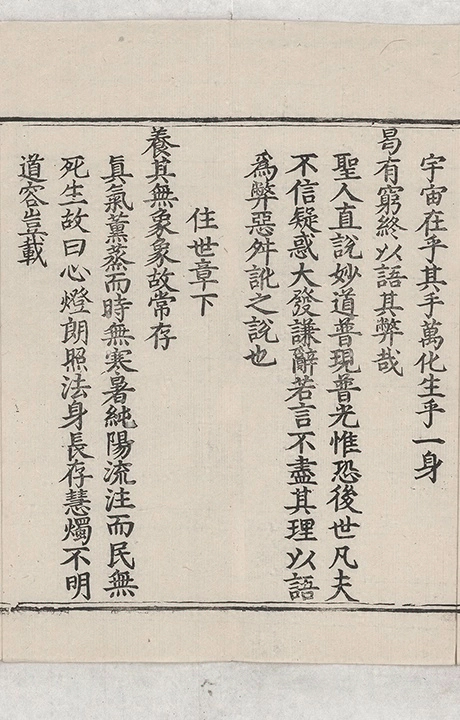 宇宙在乎其手萬化生乎一身
曷有窮終以語其弊哉
聖人直說妙道普現普光惟恐後世凡夫
不信疑惑大發謙辭若言不盡其理以語
為弊惡舛訛之說也
住世章下
養其無象象故常存
真氣薰蒸而時無寒暑純陽流注而民無
死生故曰心燈朗照法身長存慧燭不明
道容豈載